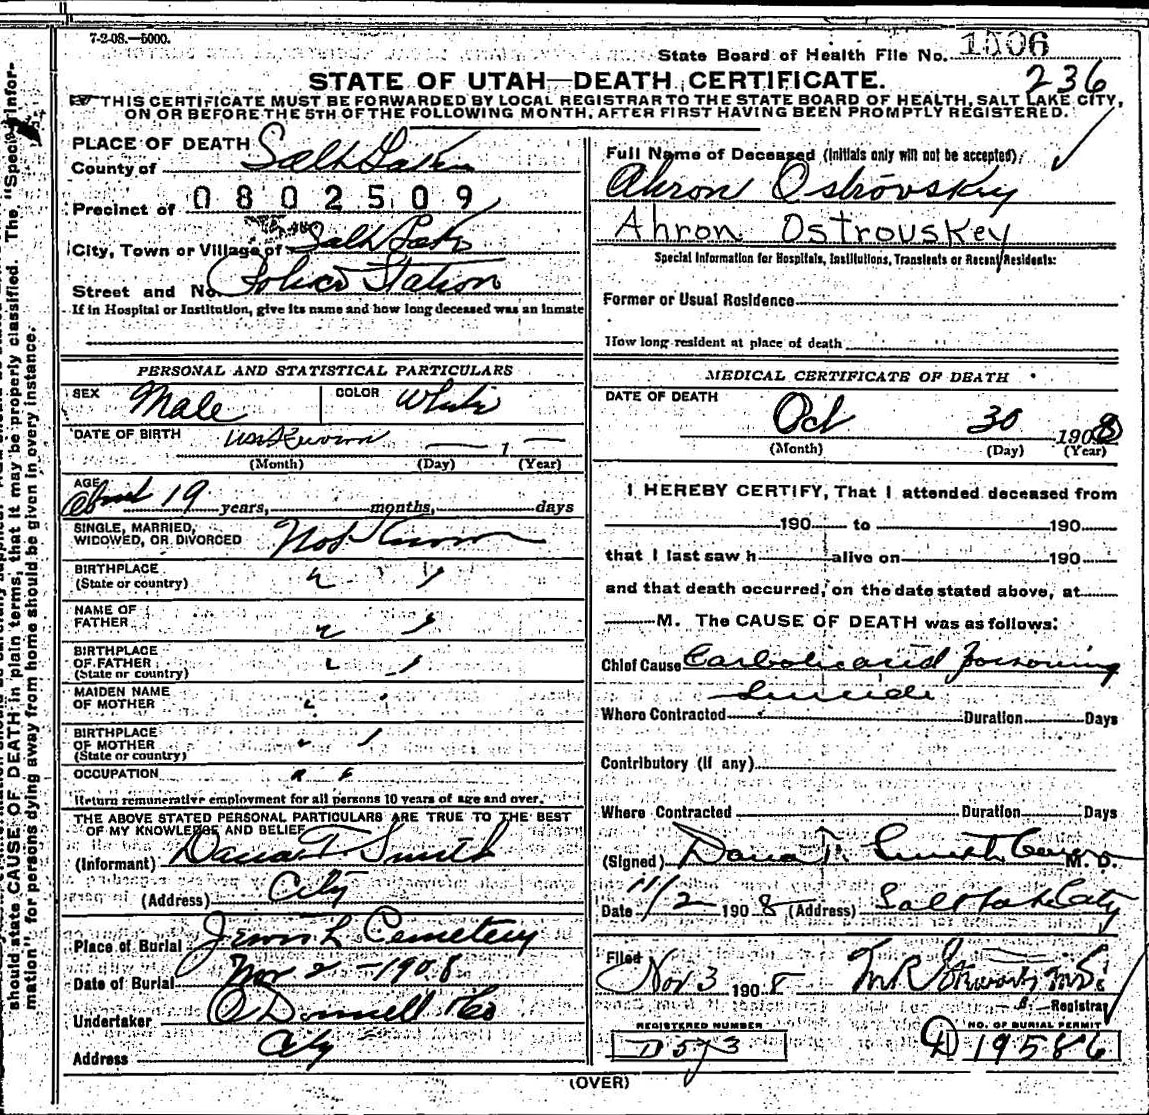 7-2-08.—5000.
State Board of Health File No. 1506
236
STATE OF UTAH—DEATH CERTIFICATE.
THIS CERTIFICATE MUST BE FORWARDED BY LOCAL REGISTRAR TO THE STATE BOARD OF HEALTH, SALT LAKE CITY,
ON OR BEFORE THE 5TH OF THE FOLLOWING MONTH, AFTER FIRST HAVING BEEN PROMPTLY REGISTERED.
PLACE OF DEATH
County of Salt Lake
Precinct of 0802509
City, Town or Village of Salt Lake
Street and No. Police Station
If in Hospital or Institution, give its name and how long deceased was an inmate
PERSONAL AND STATISTICAL PARTICULARS
SEX Male COLOR White
DATE OF BIRTH unknown
(Month) (Day) (Year)
AGE
About 19 years, months, days
SINGLE, MARRIED,
WIDOWED, OR DIVORCED Not Known
BIRTHPLACE
(State or country) " "
NAME OF
FATHER " "
BIRTHPLACE
OF FATHER " "
(State or country)
MAIDEN NAME
OF MOTHER " "
BIRTHPLACE
OF MOTHER " "
(State or country)
OCCUPATION " "
Return remunerative employment for all persons 10 years of age and over.
THE ABOVE STATED PERSONAL PARTICULARS ARE TRUE TO THE BEST
OF MY KNOWLEDGE AND BELIEF
(Informant) Dana T. Smith
(Address) City
Place of Burial Jewish Cemetery
Date of Burial Nov. 2 - 1908
Undertaker O'Donnell & Co
Address City
Full Name of Deceased (Initials only will not be accepted):
Ahron Ostrovskey
Ahron Ostrouskey
Special Information for Hospitals, Institutions, Transients or Recent Residents:
Former or Usual Residence
How long resident at place of death
MEDICAL CERTIFICATE OF DEATH
DATE OF DEATH
Oct 30 1908
(Month) (Day) (Year)
I HEREBY CERTIFY, That I attended deceased from
190 to 190
that I last saw h alive on 190
and that death occurred, on the date stated above, at
M. The CAUSE OF DEATH was as follows:
Chief Cause Carbolic acid poisoning
Suicide
Where Contracted Duration Days
Contributory (if any)
Where Contracted Duration Days
(Signed) Dana T. Smith M. D.
Date 11/2 1908 (Address) Salt Lake City
Filed Nov 3 1908 M.D.
Registrar
REGISTERED NUMBER
D 573
NO. OF BURIAL PERMIT
D 19586
(OVER)
should state CAUSE OF DEATH in plain terms, that it may be properly classified. The "Special Infor-
mation" for persons dying away from home should be given in every instance.